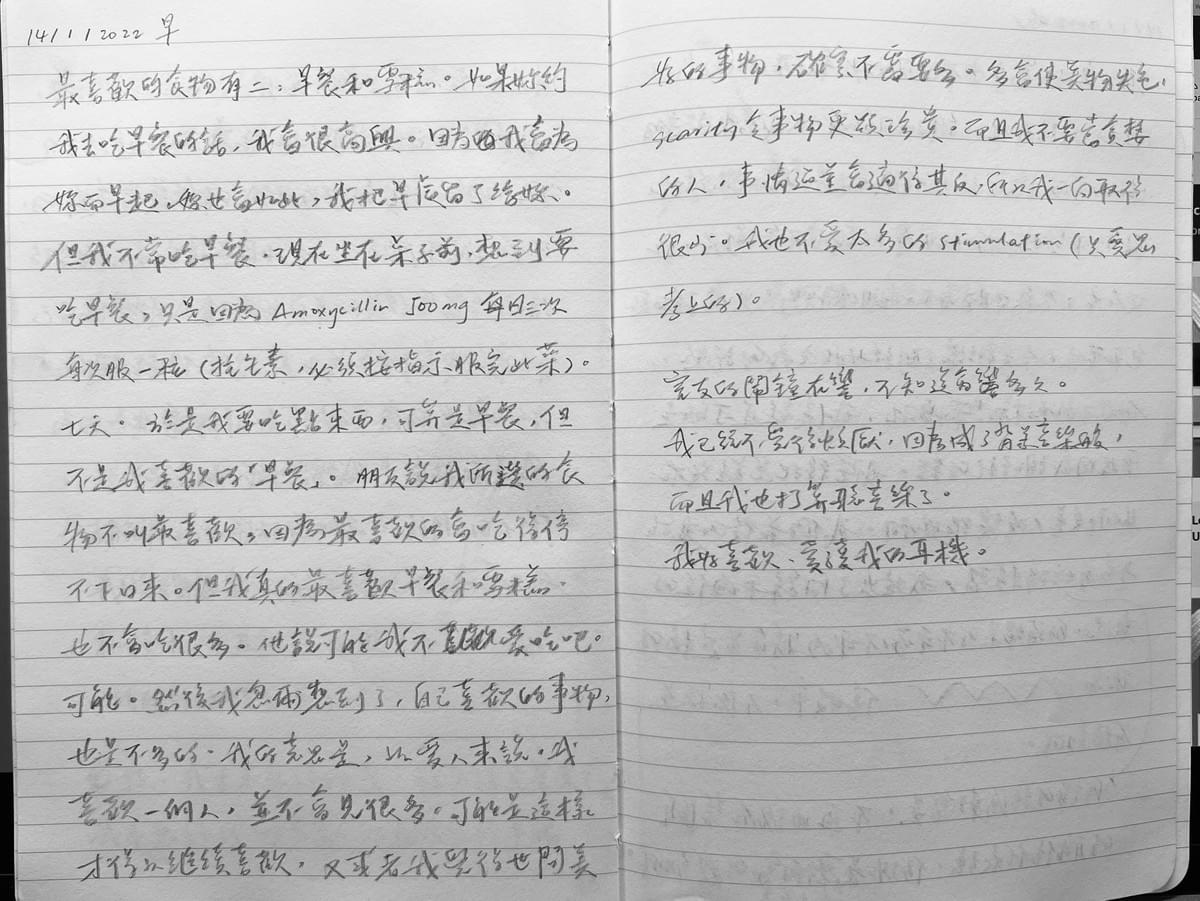 14/1/2022 早
最喜歡的食物有二：早餐和雪糕。如果妳約
我去吃早餐的話，我會很高興。因為我會為
妳而早起，妳也會如此，我把早晨留了給妳。
但我不常吃早餐。現在坐在桌子前，想到要
吃早餐，只是因為 Amoxycillin 500mg 每日三次
每次服一粒（抗生素，必須按指示服完此藥）。
七天。於是我要吃點東西，可算是早餐，但
不是我喜歡的「早餐」。朋友說我所選的食
物不叫最喜歡，因為最喜歡的會吃得停
不下口來。但我真的最喜歡早餐和雪糕。
也不會吃很多。他說可能我不愛吃吧。
可能。然後我忽爾想到了，自己喜歡的事物，
也是不多的。我的意思是，以愛人來說。我
喜歡一個人，並不會見很多。可能是這樣
才得以繼續喜歡，又或者我覺得世間美
好的事物，確實不需要多。多會使美物失色，
scarity 令事物更顯珍貴。而且我不要當貪婪
的人，事情還是會適得其反，所以我一向取得
很少。我也不愛太多的 stimulation（只愛思
考上的）。
室友的鬧鐘在響，不知道會響多久。
我已經不覺得，因為成了背景音樂般，
而且我也打算聽音樂了。
我好喜歡、愛護我的耳機。